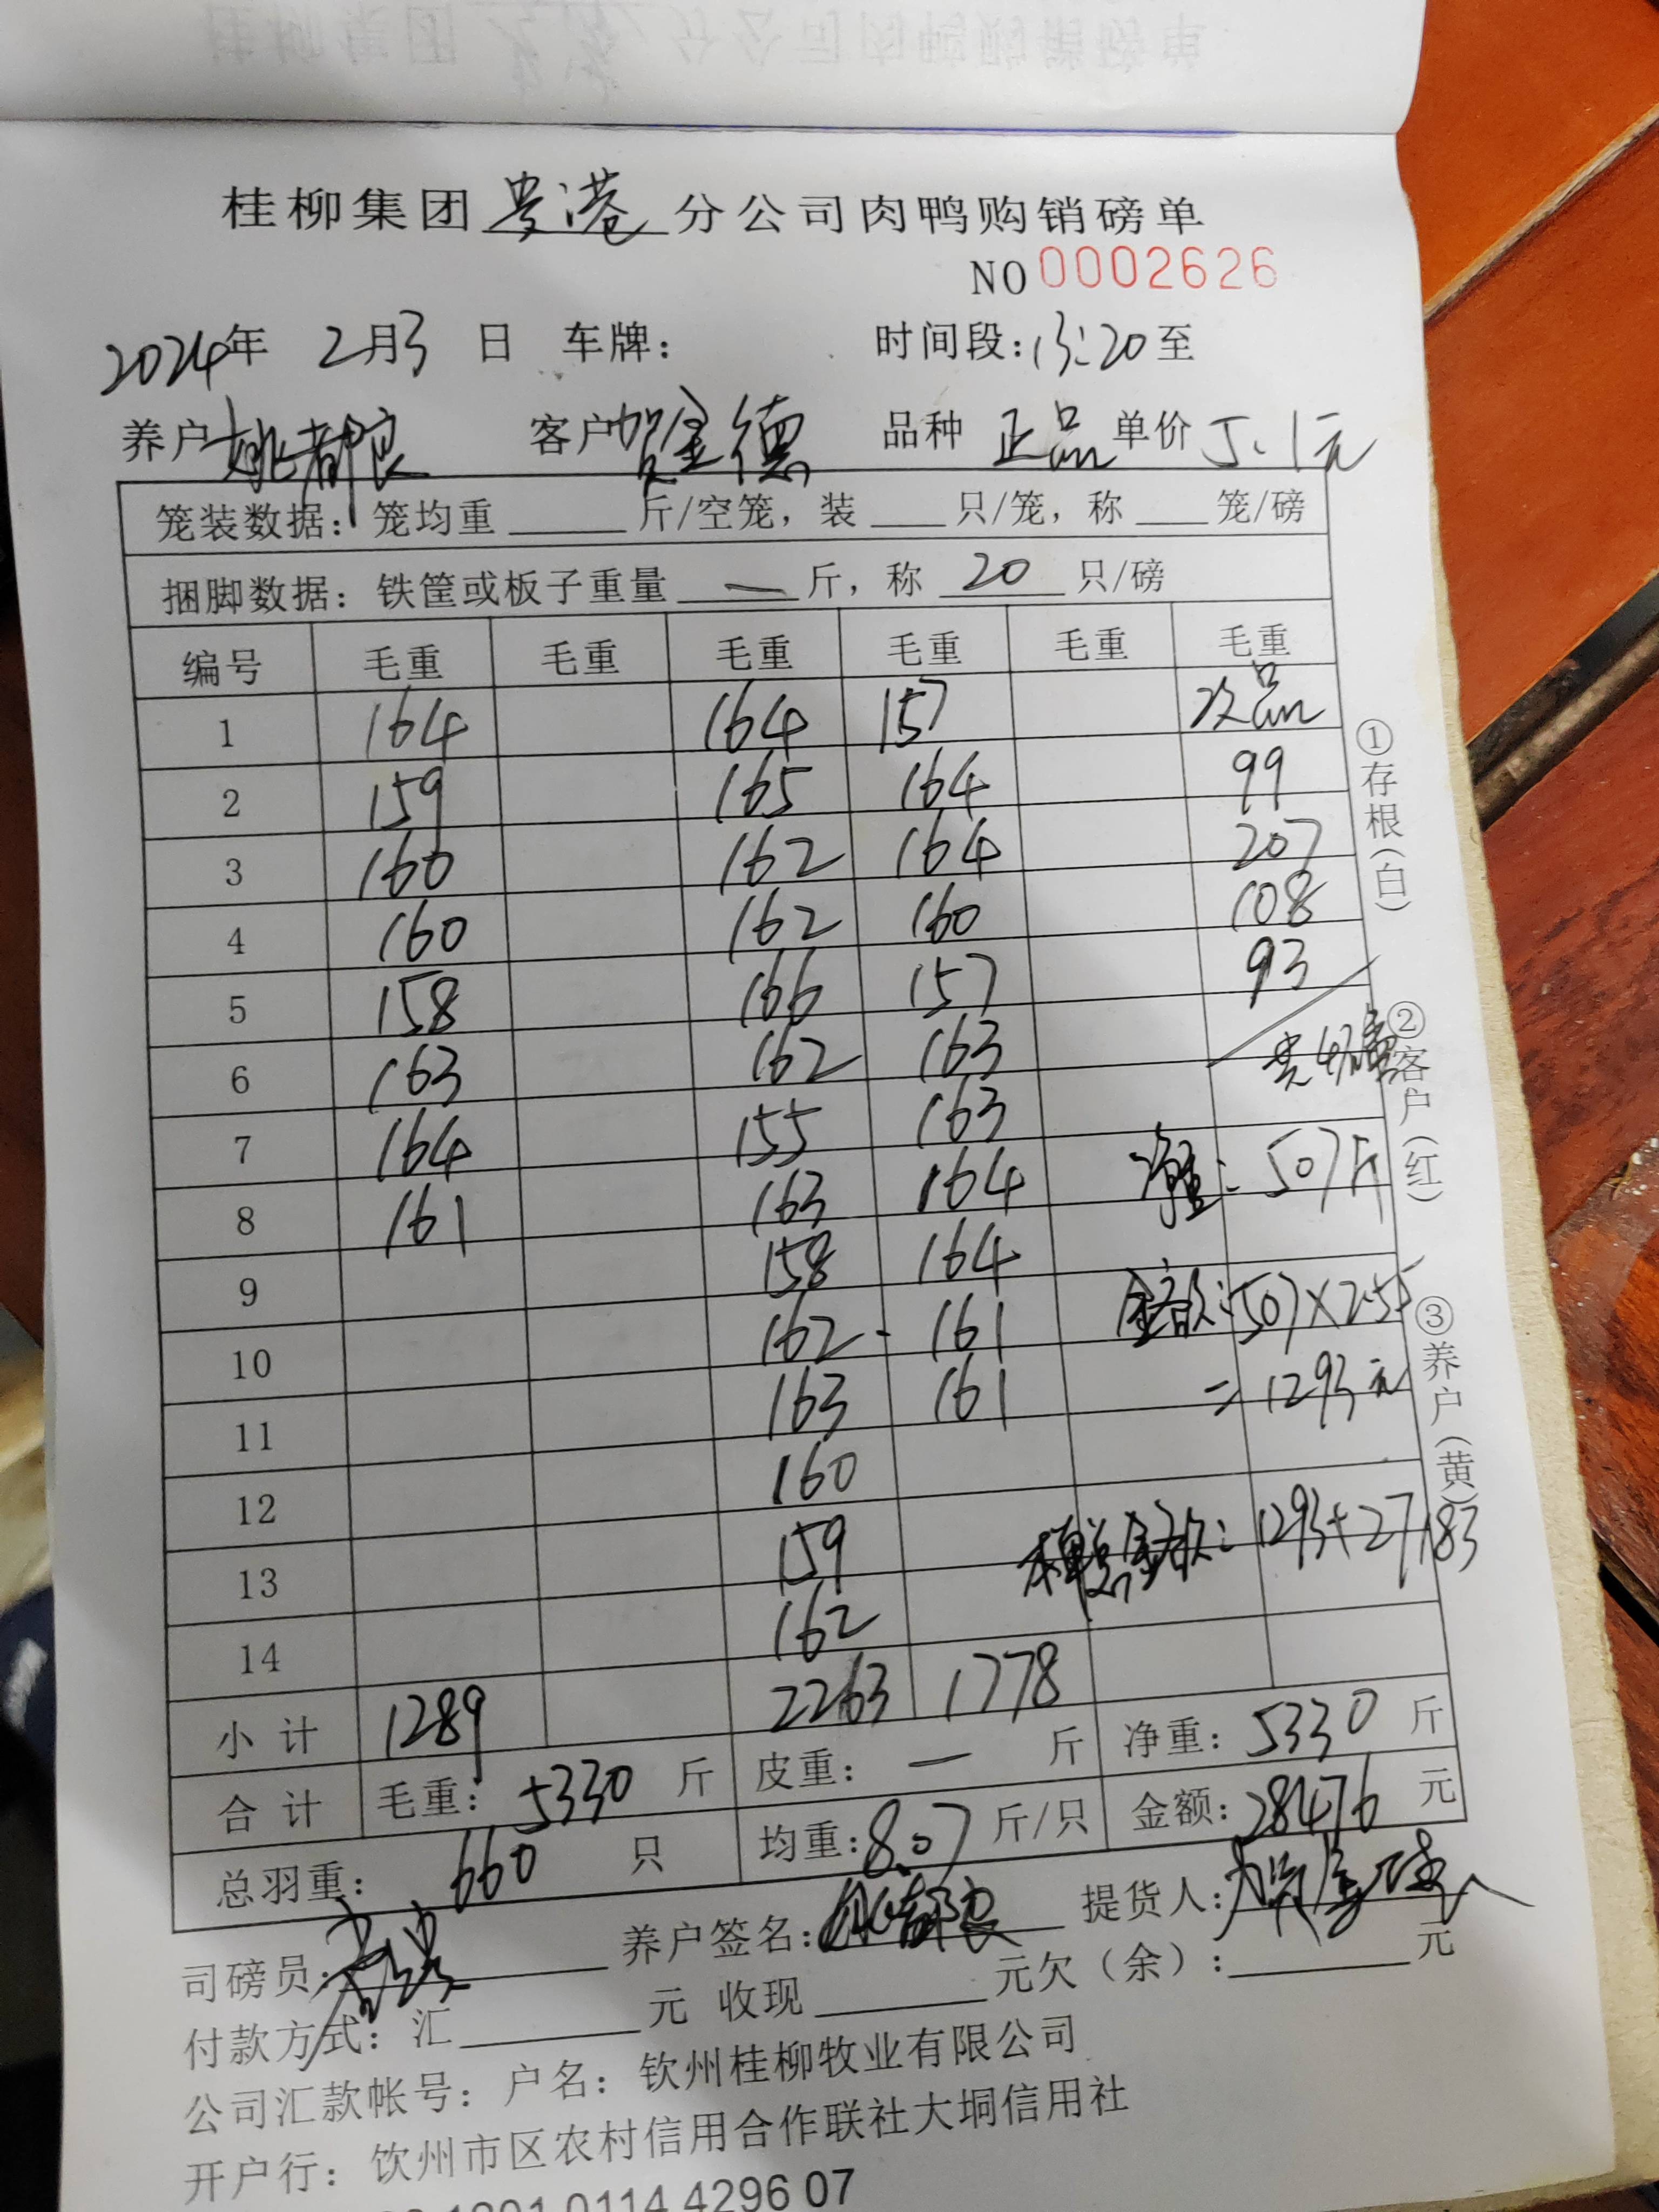 桂柳集团贵港分公司肉鸭购销磅单
NO 0002626
2024年 2月3日 车牌: 时间段:13:20至
养户姚都良 客户贺金德 品种 正品 单价 5.1元
笼装数据: 笼均重 斤/空笼, 装 只/笼, 称 笼/磅
捆脚数据: 铁筐或板子重量 — 斤, 称 20 只/磅
编号 毛重 毛重 毛重 毛重 毛重 毛重
1 164 164 157 次品
2 159 165 164 99
3 160 162 164 207
4 160 162 160 108
5 158 166 157 93
6 163 162 163 共4磅
7 164 155 163
8 161 163 164 净重: 507斤
9 158 164
10 162 161 金额: 507×2.55
11 163 161 =1293元
12 160
13 159 本单总金额: 1293+27183
14 162
小计 1289 2263 1778
合计 毛重: 5330 斤 皮重: — 斤 净重: 5330 斤
总羽重: 660 只 均重: 8.07 斤/只 金额: 28476 元
司磅员: 养户签名: 姚都良 提货人: 贺金德
付款方式: 汇 元 收现 元欠(余): 元
公司汇款帐号: 户名: 钦州桂柳牧业有限公司
开户行: 钦州市区农村信用合作联社大垌信用社
0114 4296 07
①存根(白)
②客户(红)
③养户(黄)